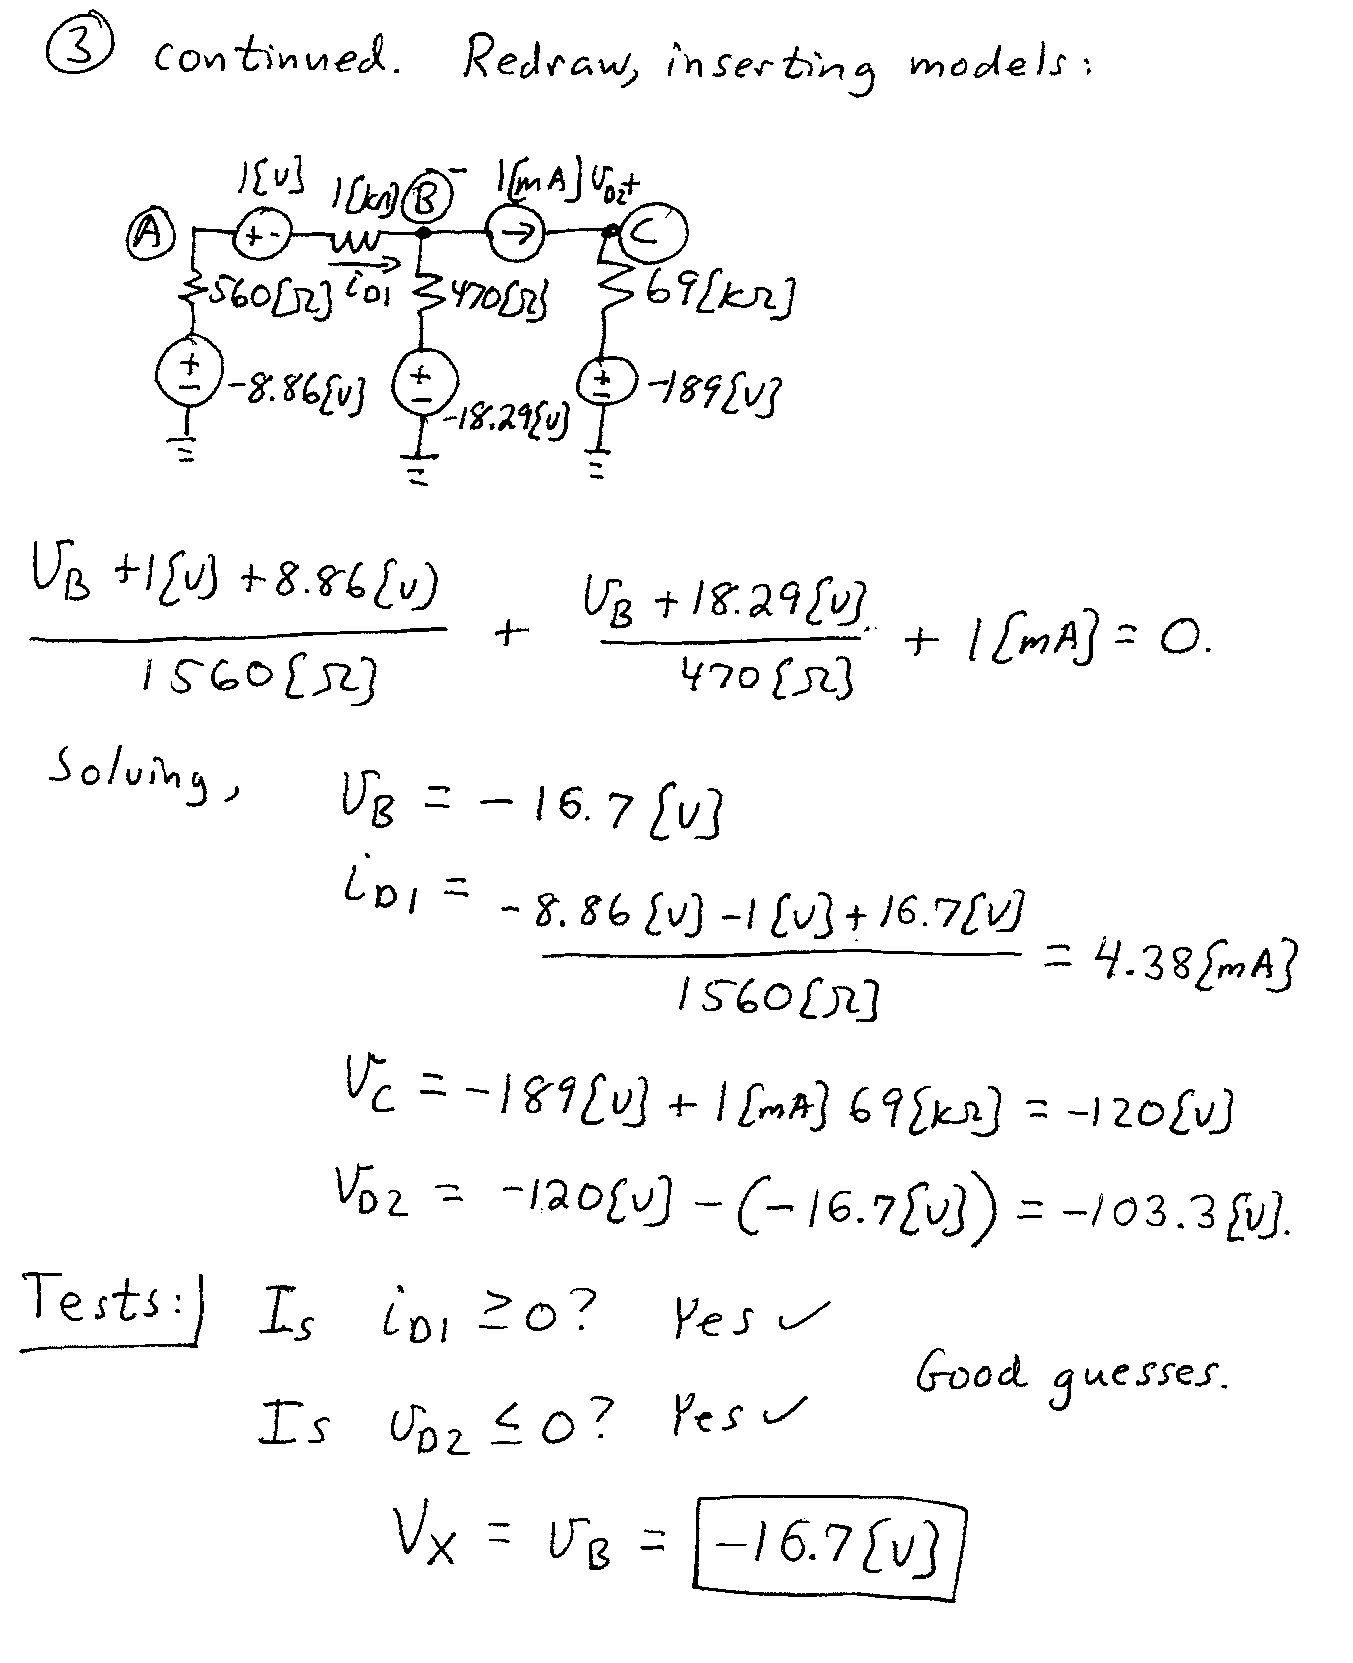 ③ continued. Redraw, inserting models:
1[V] 1[kΩ] B - 1[mA] vD2 +
A + - → C
560[Ω] iD1 470[Ω] 69[kΩ]
+ - -8.86[V] + - -18.29[V] + - -189[V]
vB + 1[V] + 8.86[V] / 1560[Ω] + vB + 18.29[V] / 470[Ω] + 1[mA] = 0.
Solving, vB = -16.7[V]
iD1 = -8.86[V] - 1[V] + 16.7[V] / 1560[Ω] = 4.38[mA]
vC = -189[V] + 1[mA] 69[kΩ] = -120[V]
vD2 = -120[V] - (-16.7[V]) = -103.3[V].
Tests: Is iD1 ≥ 0? Yes ✓
Good guesses.
Is vD2 ≤ 0? Yes ✓
vX = vB = -16.7[V]